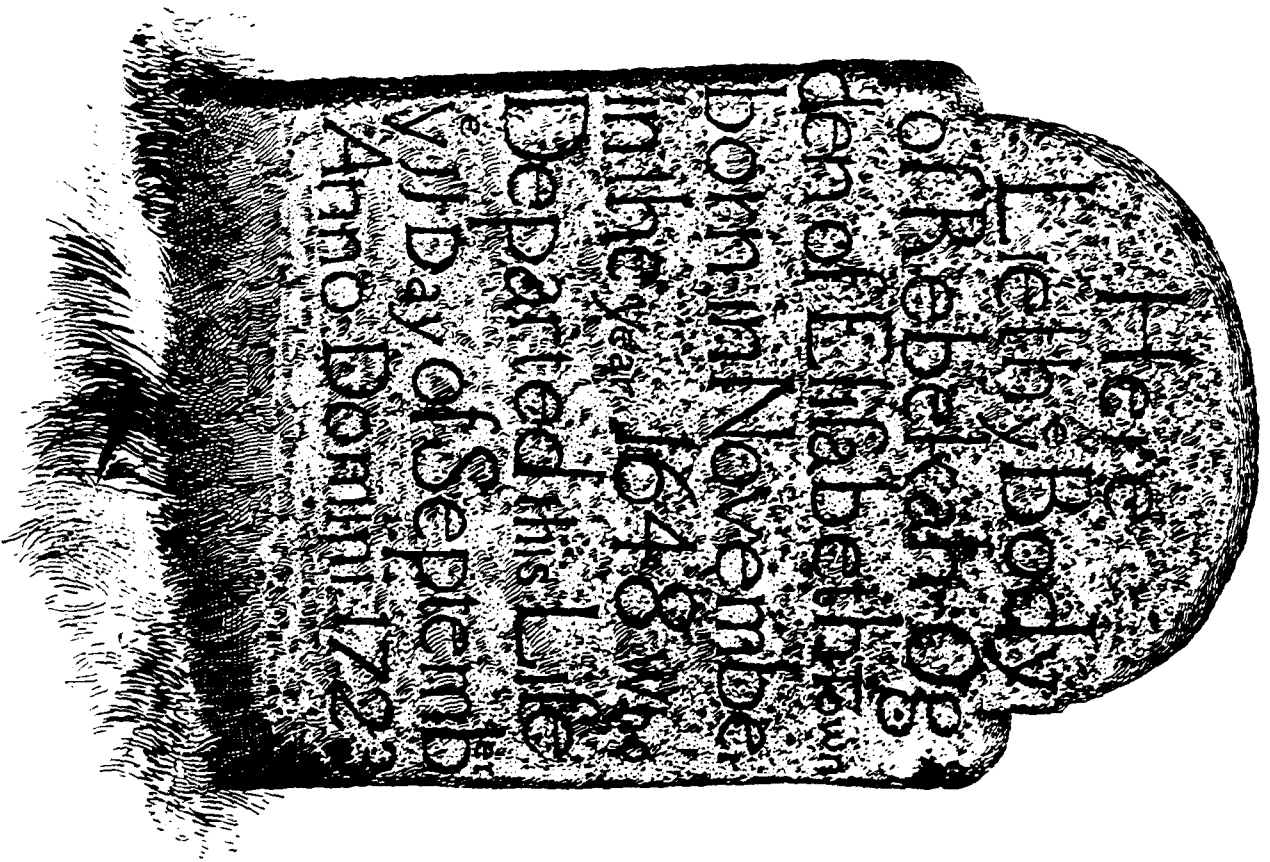 Here
Lieth yᵉ Body
of Rebekah Og
den of Elisabeth town
born in November
in the year 1648 who
Departed this Life
yᵉ VJJ Day of September
Anno Domini 1723